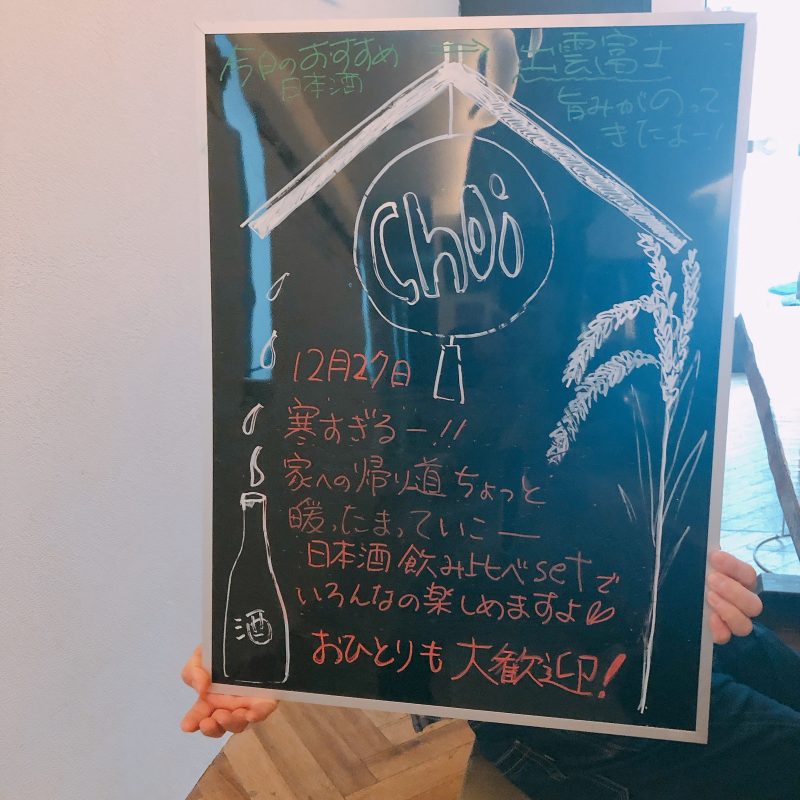 今日のおすすめ
日本酒
出雲富士
旨みがのって
きたよー!
Choi
12月27日
寒すぎるー!!
家への帰り道ちょっと
暖ったまっていこー
日本酒飲み比べsetで
いろんなの楽しめますよ♡
おひとりも大歓迎!
酒